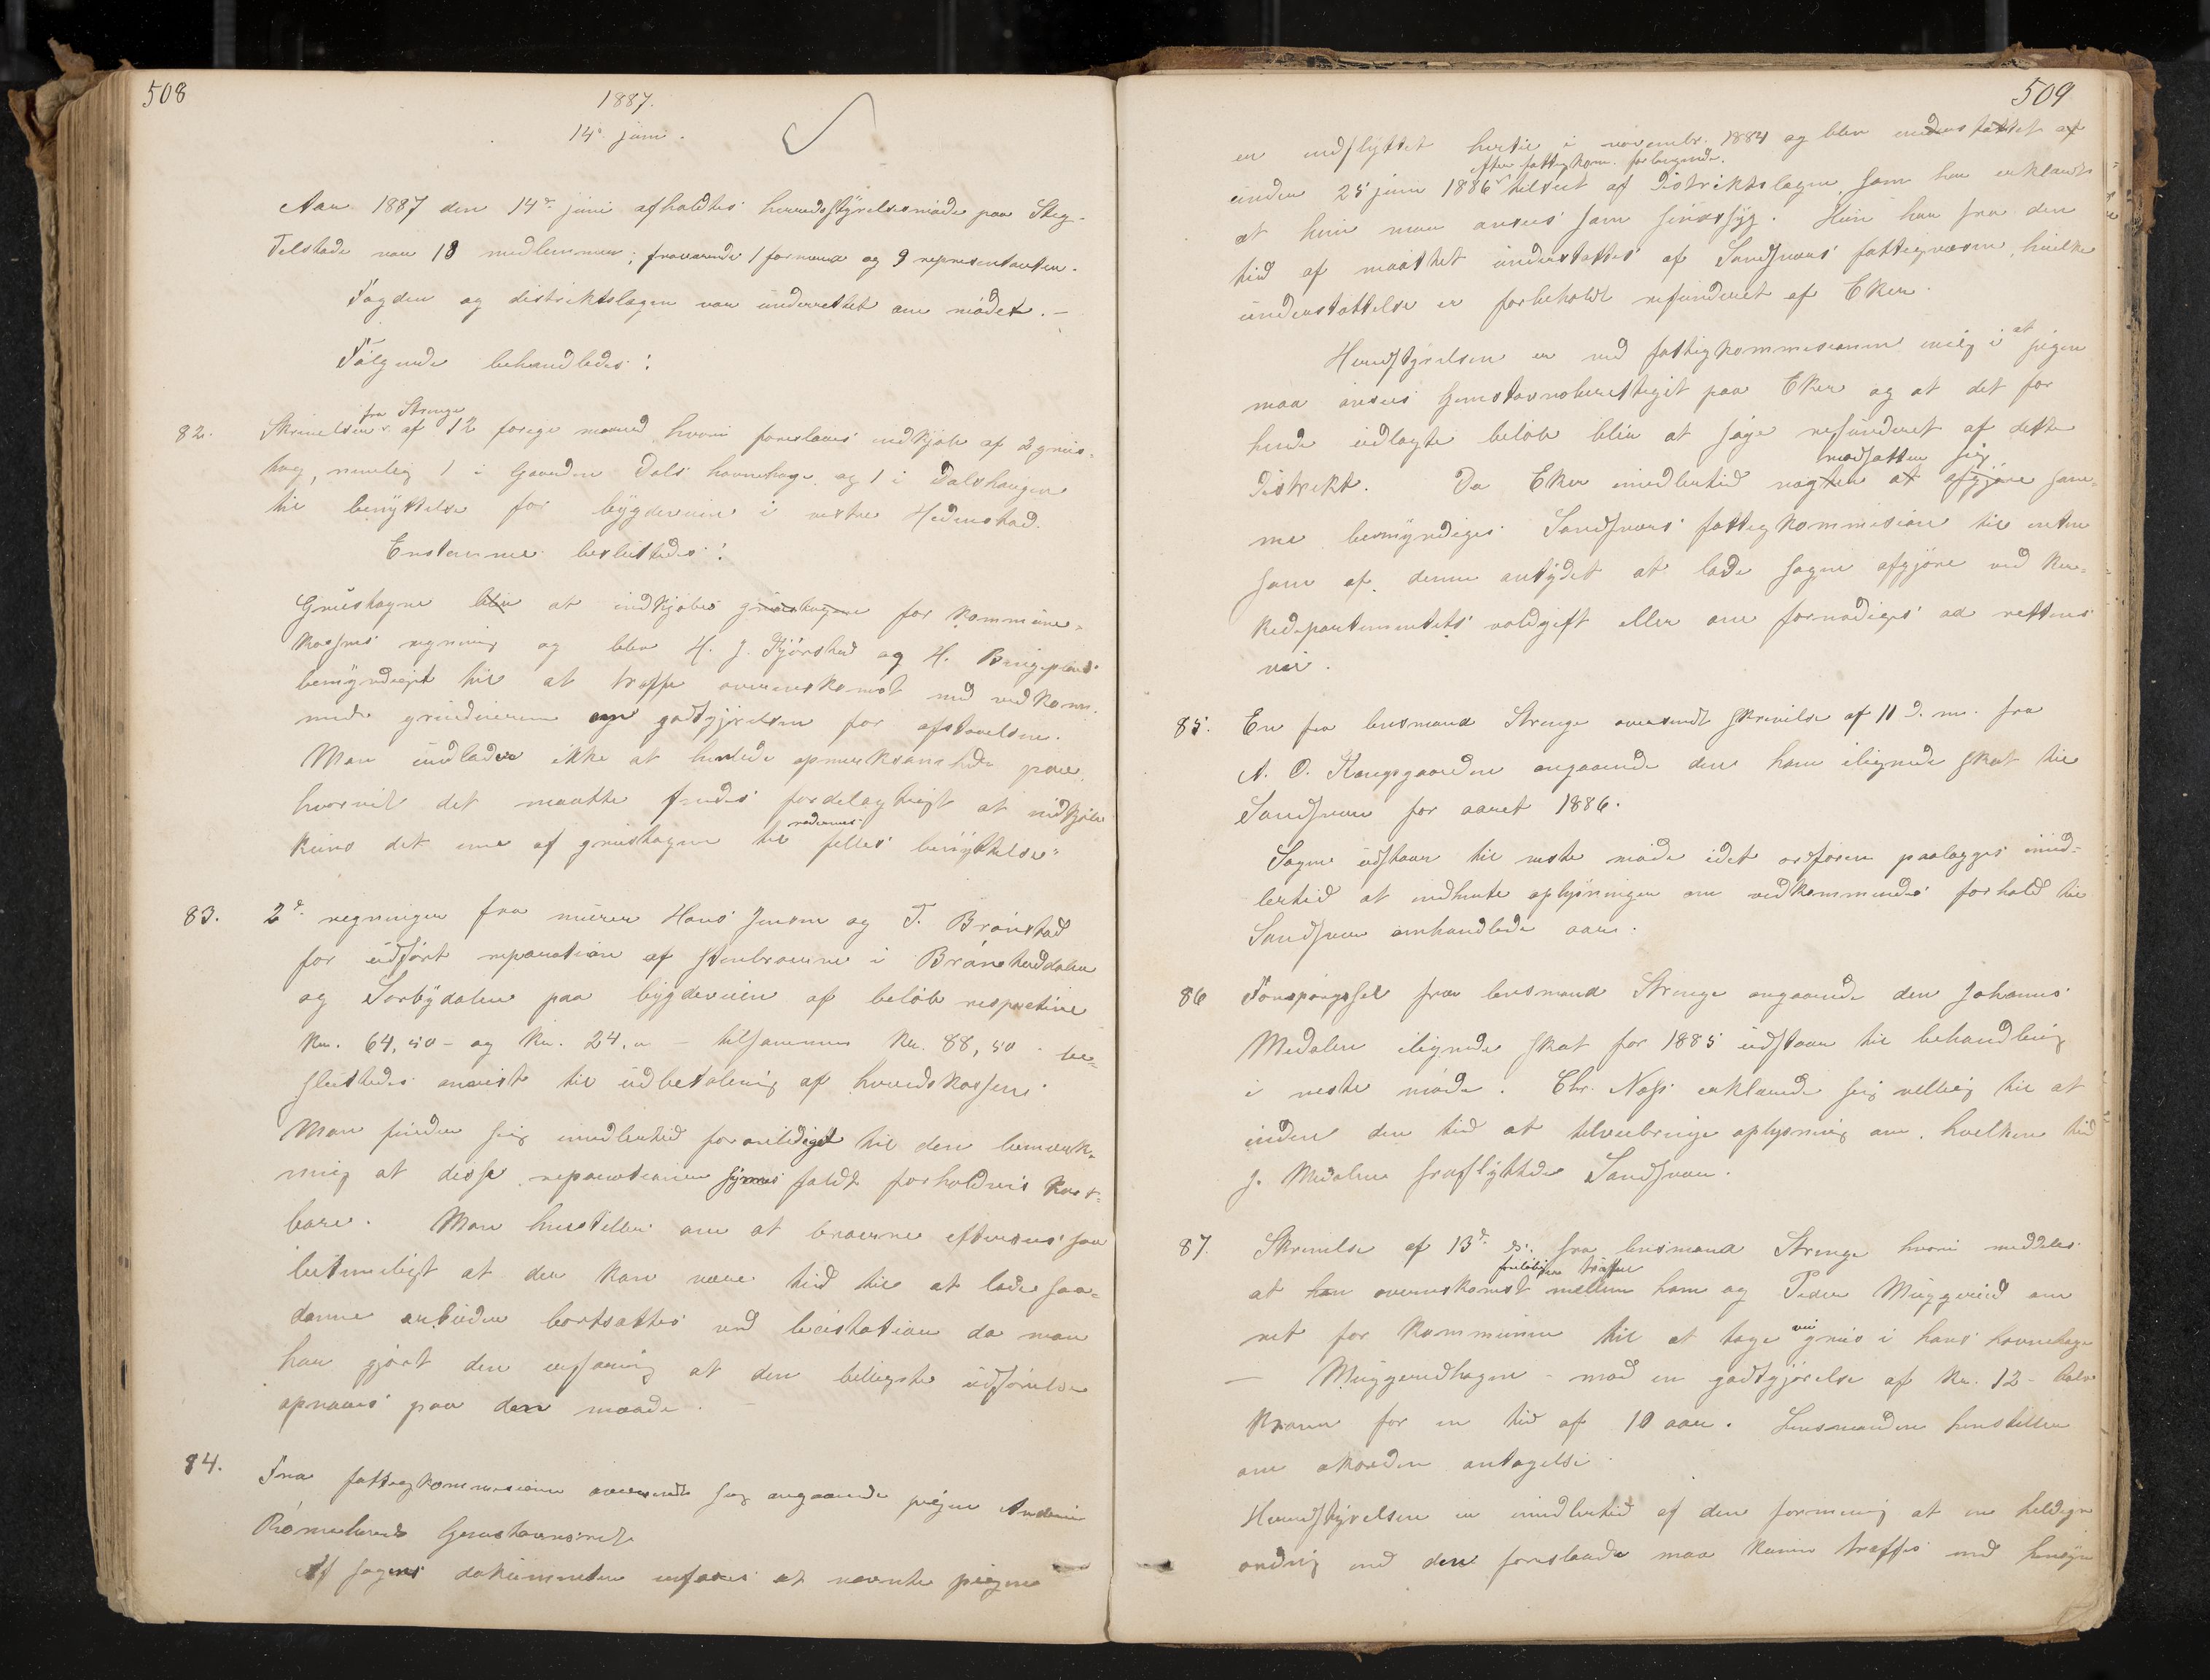 508
1887.
14de juni.
Aar 1887 den 14de juni afholdtes herredsstyrelsesmøde paa Steg.
Tilstede var 18 medlemmer; fraværende 1 formand og 9 repræsentanter.
Fogden og distriktslægen var underrettet om mødet. –
Følgende behandledes:
fra Strenge
82. Skrivelse af 12 forrige maaned hvori foreslaaes indkjøb af 2 grus-
tag, nemlig 1 i Gaarden Dals havnehage og 1 i Dalshaugen
til benyttelse for bygdeveien i vestre Hedenstad.
Enstemmig besluttedes:
Grustagene blir at indkjøbes grustagene for kommune-
kassens regning og blev H. J. Fjørstad og H. Bingeplads
bemyndiget til at træffe overenskomst med vedkom-
mende grundeiere om godtgjørelsen for afstaaelsen.
Man undlader ikke at henlede opmerksomheden paa,
hvorvidt det maatte findes fordelagtigt at indkjøbe
veiernes
kuns det ene af grustagene til fælles benyttelse
83. 2de regninger fra murer Hans Jensen og T. Brønstad
for udført reparation af stenbroerne i Brønstaddalen
og Sørbydalen paa bygdeveien af beløb respektive
Kr. 64,50 – og Kr. 24,00 – tilsammen Kr. 88,50 – be-
sluttedes anvist til udbetaling af herredskassen.
Man finder sig imidlertid foranlediget til den bemærk-
ning at disse reparationer synes faldt forholdsvis kost-
bare. Man henstiller om at broerne efterses saa
betimeligt at der kan være tid til at lade saa-
danne arbeider bortsættes ved licitation da man
har gjort den erfaring at den billigste udførelse
opnaaes paa den maade. –
84. Fra fattigkommissionen oversendt sag angaaende pigen
hjemstavnsret.
Af sagens dokumenter erfares at nævnte pigen
509
er indflyttet hertil i novembr. 1884 og blev understøttet af
efter fattigkom. forlangende.
under 25 juni 1886 tilseet af Distriktslægen som har erklæret
at hun maa ansees som sindssyg. Hun har fra den
tid af maattet understøttes af Sandsværs fattigvæsen, hvilken
understøttelse er forbeholdt refunderet af Eker.
Herredsstyrelsen er med fattigkommissionen enig i at pigen
maa ansees hjemstavnsberettiget paa Eker og at det for
hende udlagte beløb blir at søge refunderet af dette
modsætter sig
Distrikt. Da Eker imidlertid nægter at afgjøre sam-
me bemyndiges Sandsværs fattigkommission til enten
som af denne antydet at lade sagen afgjøre ved Kir-
kedepartementets voldgift eller om fornødiges ad rettens
vei.
85. En fra lensmand Strenge oversendt skrivelse af 11 d.m. fra
A. O. Kongsgaarden angaaende den ham ilignede skat til
Sandsvær for aaret 1886.
Sagen udstaar til neste møde idet ordføren paalægges imid-
lertid at indhente oplysninger om vedkommendes forhold til
Sandsvær omhandlede aar.
86 Forespørgsel fra lensmand Strenge angaaende den Johannes
Medalen ilignede skat for 1885 udstaar til behandling
i neste møde. Chr. Næss erklærede sig villig til at
inden den tid at tilveiebringe oplysning om, hvilken tid
J. Medalen fraflyttede Sandsvær.
87. Skrivelse af 13de ds. fra lensmand Strenge hvori meddeles
foreløbigen truffen
at han overenskomst mellem ham og Peder Muggerud om
ret for kommunen til at tage vei grus i hans havnehage
– Muggerudhagen – mod en godtgjørelse af Kr. 12 – tolv
kroner for en tid af 10 aar. Lensmanden henstiller
om akordens antagelse.
Herredsstyrelsen er imidlertid af den formening at en heldigere
ordning end den foreslaaede maa kunne træffes med hensyn